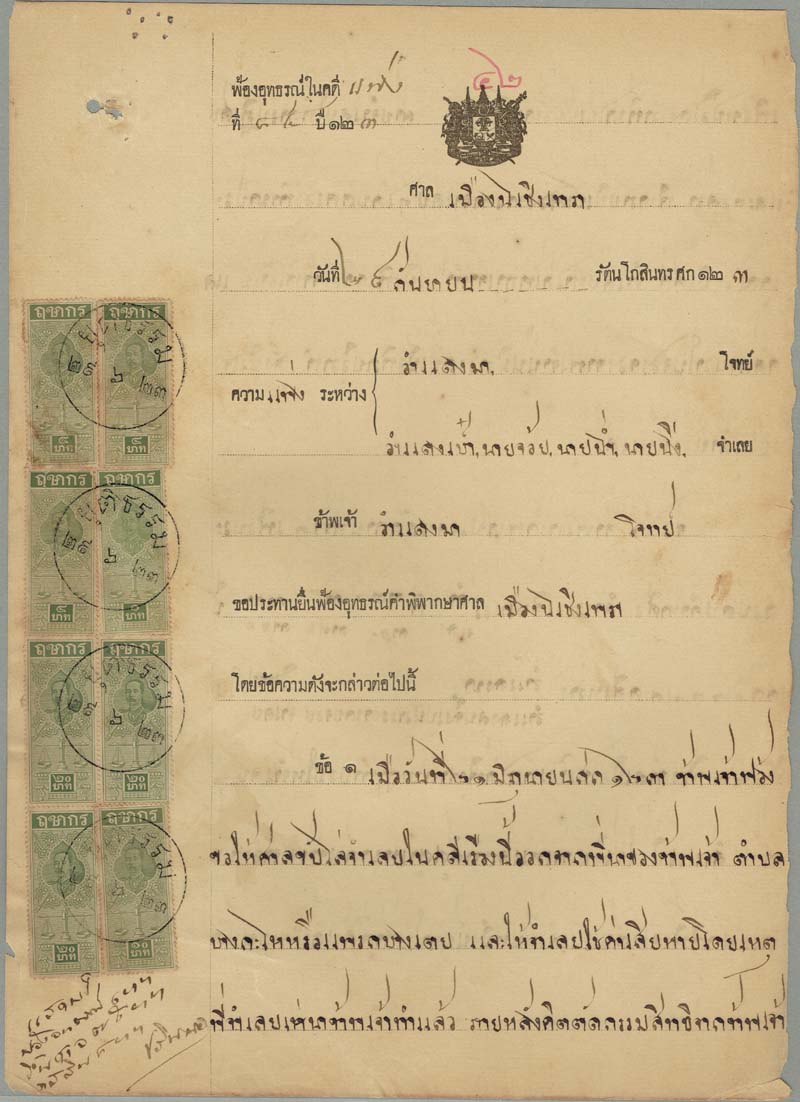 ๔๒
ฟ้องอุทธรณ์ในคดี แพ่ง
ที่ ๘๔ ปี ๑๒๓
ศาล เมืองฉเชิงเทรา
วันที่ ๒๘ กันยายน รัตนโกสินทรศก ๑๒๓
ความ แพ่ง ระหว่าง
อำแดงมา, โจทย์
อำแดงเป้า, นายจ้อย, นายน่ำ, นายนึ่ง, จำเลย
ข้าพเจ้า อำแดงมา โจทย์
ขอประทานยื่นฟ้องอุทธรณ์คำพิพากษาศาล เมืองฉเชิงเทรา
โดยข้อความดังจะกล่าวต่อไปนี้
ข้อ ๑ เมื่อวันที่ ๒๑ มิถุนายนศก ๑๒๓ ข้าพเจ้าฟ้อง
ขอให้ศาลขับไล่จำเลยในคดีเรื่องนี้ออกจากที่นาของข้าพเจ้า ตำบล
และให้จำเลยใช้ค่าเสียหายโดยเหตุ
ที่จำเลยเช่านาข้าพเจ้าทำแล้ว ภายหลังคิดตัดกรรมสิทธิ์จากข้าพเจ้า
ฤชากร
ฤชากร
บาท
บาท
ยุติธรรม
๒๙ ๖ ๒๓
ฤชากร
ฤชากร
บาท
บาท
ยุติธรรม
๒๙ ๖ ๒๓
ฤชากร
ฤชากร
๒๐ บาท
๒๐ บาท
ยุติธรรม
๒๙ ๖ ๒๓
ฤชากร
ฤชากร
๒๐ บาท
๒๐ บาท
ยุติธรรม
๖ ๒๓